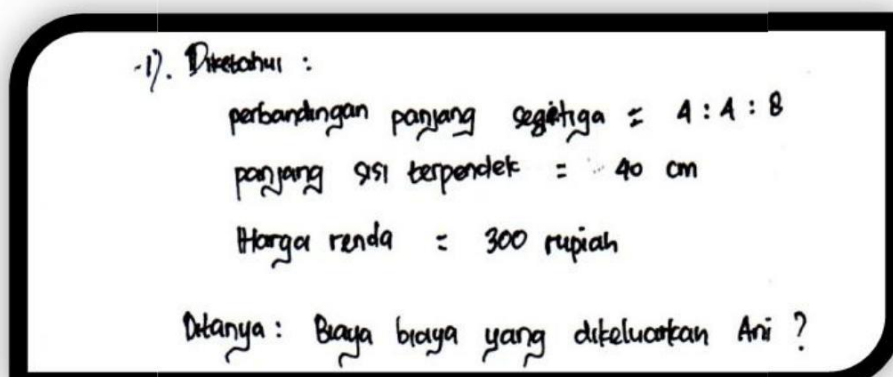 1). Diketahui :
perbandingan panjang segitiga = 4 : 4 : 8
panjang sisi terpendek = 40 cm
Harga renda = 300 rupiah
Ditanya : Biaya biaya yang dikeluarkan Ani ?